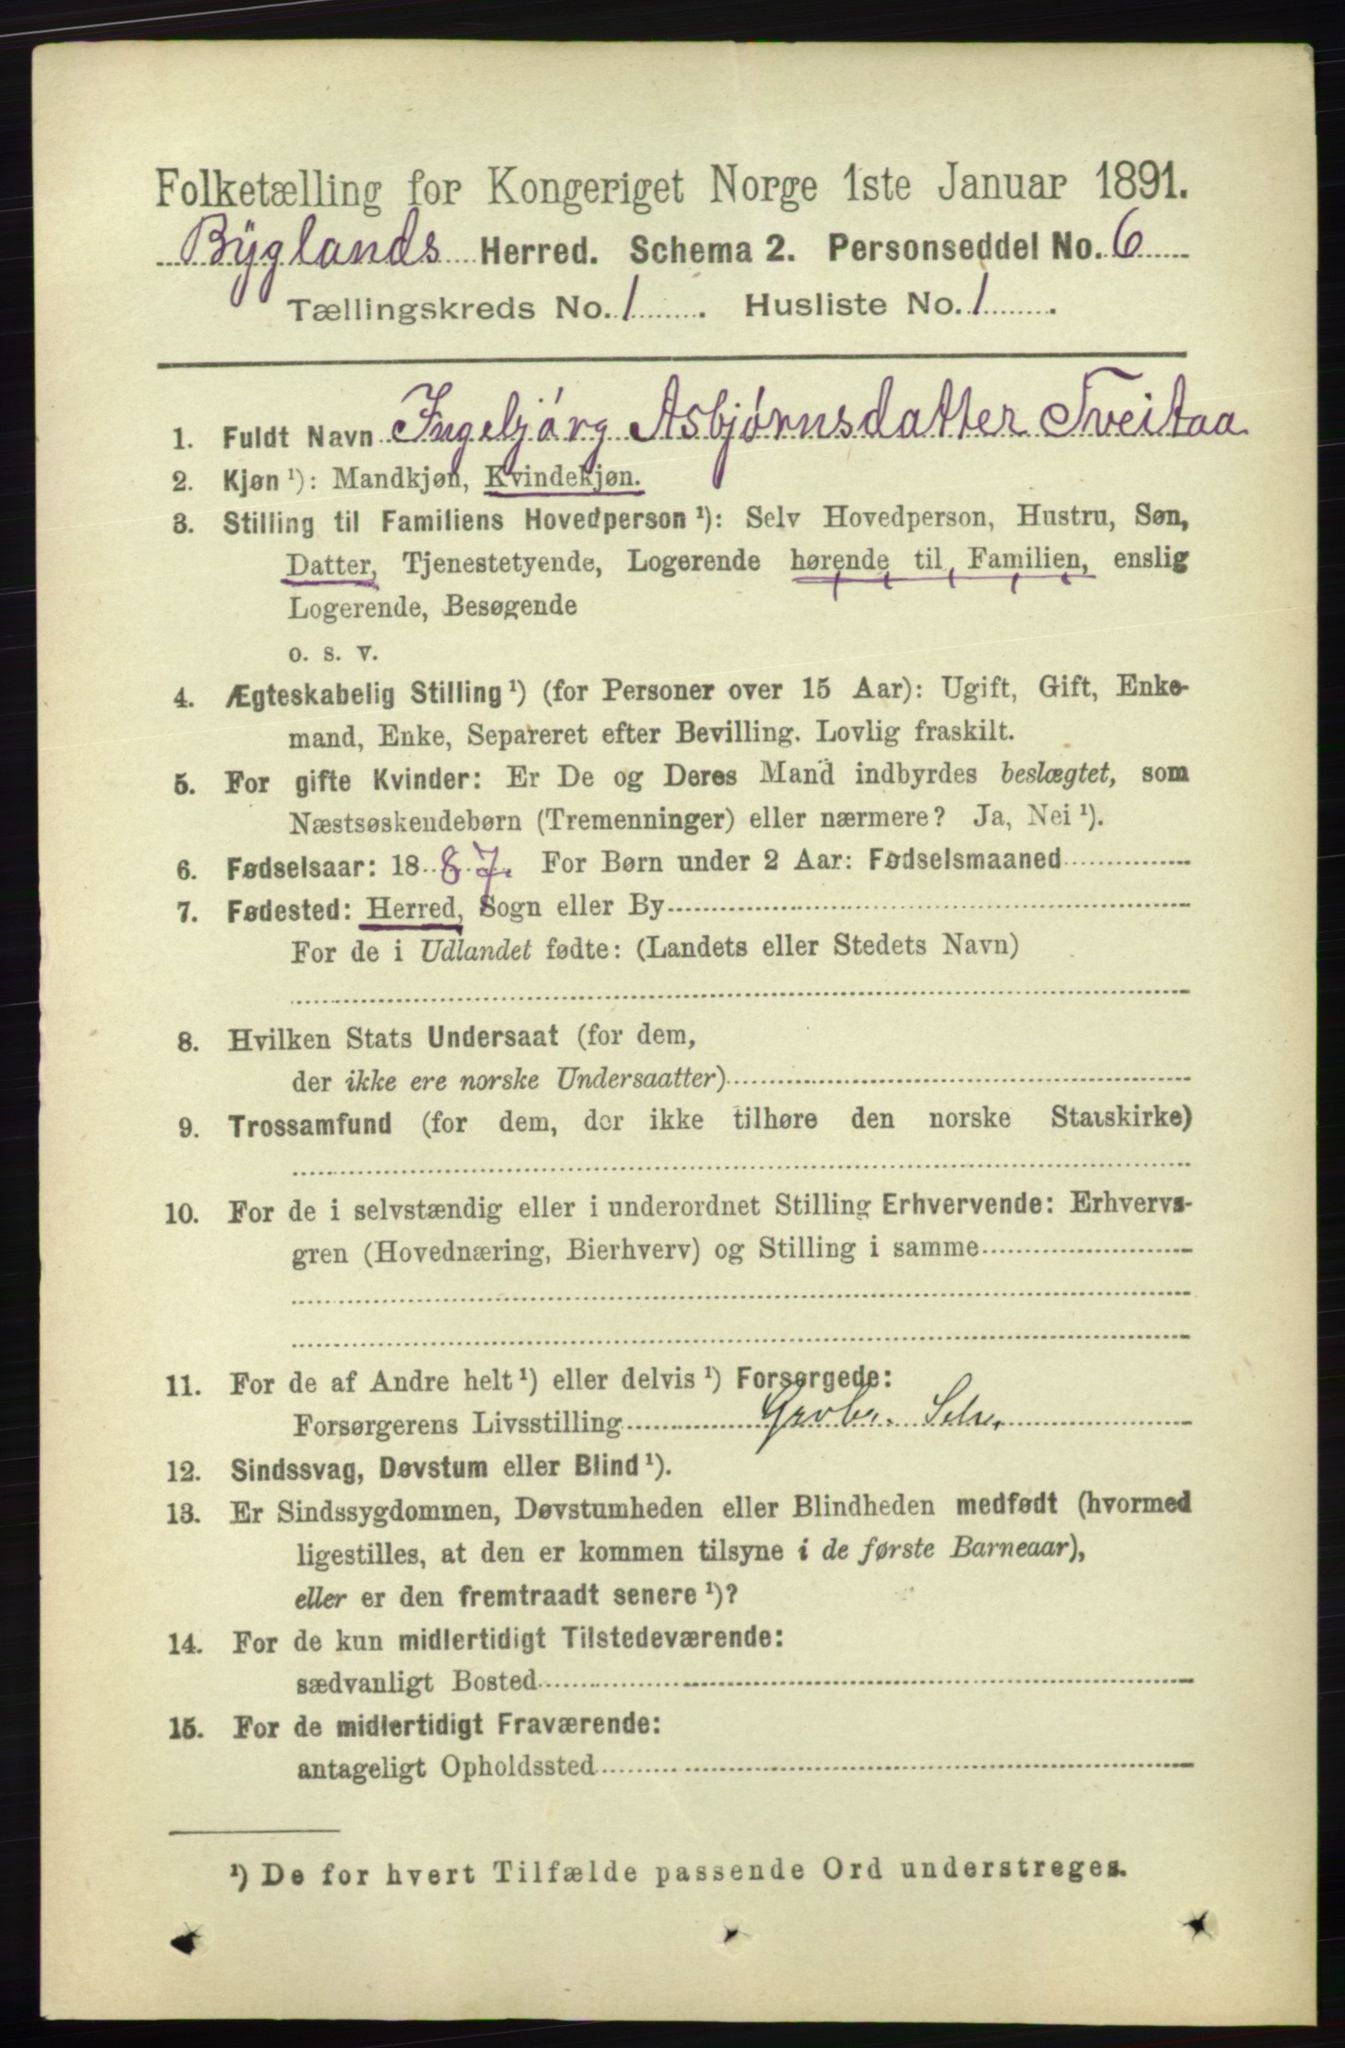 Folketælling for Kongeriget Norge 1ste Januar 1891.
Byglands Herred. Schema 2. Personseddel No. 6
Tællingskreds No. 1. Husliste No. 1.
1. Fuldt Navn Ingebjørg Asbjørnsdatter Tveitaa
2. Kjøn ¹): Mandkjøn, Kvindekjøn.
3. Stilling til Familiens Hovedperson ¹): Selv Hovedperson, Hustru, Søn,
Datter, Tjenestetyende, Logerende hørende til Familien, enslig
Logerende, Besøgende
o. s. v.
4. Ægteskabelig Stilling ¹) (for Personer over 15 Aar): Ugift, Gift, Enke-
mand, Enke, Separeret efter Bevilling. Lovlig fraskilt.
5. For gifte Kvinder: Er De og Deres Mand indbyrdes beslægtet, som
Næstsøskendebørn (Tremenninger) eller nærmere? Ja, Nei ¹).
6. Fødselsaar: 1887. For Børn under 2 Aar: Fødselsmaaned
7. Fødested: Herred, Sogn eller By
For de i Udlandet fødte: (Landets eller Stedets Navn)
8. Hvilken Stats Undersaat (for dem,
der ikke ere norske Undersaatter)
9. Trossamfund (for dem, der ikke tilhøre den norske Statskirke)
10. For de i selvstændig eller i underordnet Stilling Erhvervende: Erhvervs-
gren (Hovednæring, Bierhverv) og Stilling i samme
11. For de af Andre helt ¹) eller delvis ¹) Forsørgede:
Forsørgerens Livsstilling
12. Sindssvag, Døvstum eller Blind ¹).
13. Er Sindssygdommen, Døvstumheden eller Blindheden medfødt (hvormed
ligestilles, at den er kommen tilsyne i de første Barneaar),
eller er den fremtraadt senere ¹)?
14. For de kun midlertidigt Tilstedeværende:
sædvanligt Bosted
15. For de midlertidigt Fraværende:
antageligt Opholdssted
¹) De for hvert Tilfælde passende Ord understreges.